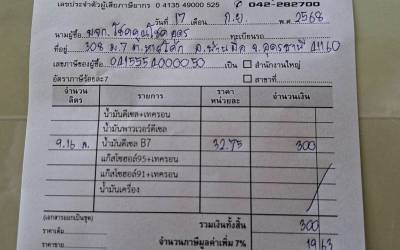 เลขประจำตัวผู้เสียภาษีอากร 0 4135 49000 525 042-282700
วันที่ 17 เดือน ก.ย. พ.ศ. 2568
นามผู้ซื้อ หจก. โชคคูณโชคถาวร ทะเบียนรถ
ที่อยู่ 308 ม.7 อ.บ้านผือ จ.อุดรธานี 41160
เลขภาษีของผู้ซื้อ 0415551000050 เป็น สำนักงานใหญ่
อัตราภาษีร้อยละ 7 สาขาที่
จำนวน ลิตร รายการ ราคา หน่วยละ จำนวนเงิน
น้ำมันดีเซล+เทครอน
น้ำมันพาวเวอร์ดีเซล
9.16 ล. น้ำมันดีเซล B7 32.75 300
แก๊สโซฮอล์95+เทครอน
แก๊สโซฮอล์91+เทครอน
น้ำมันเครื่อง
(เอกสารออกเป็นชุด) รวมเงินทั้งสิ้น 300
ราคาขาย จำนวนภาษีมูลค่าเพิ่ม 7% 19 63